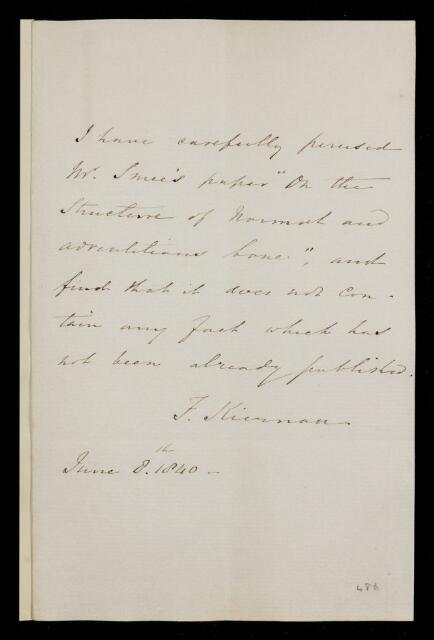 I have carefully perused
Mr. Smee's paper "On the
Structure of Normal and
adventitious bone", and
find that it does not con-
tain any fact which has
not been already published.
F. Kiernan
June 8.th 1840 -
486